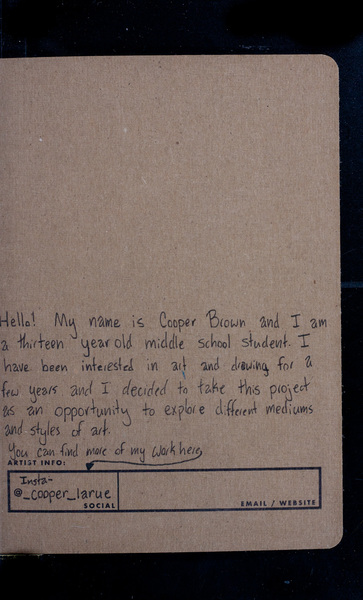 Hello! My name is Cooper Brown and I am
a thirteen year old middle school student. I
have been interested in art and drawing for a
few years and I decided to take this project
as an opportunity to explore different mediums
and styles of art.
You can find more of my work here
ARTIST INFO:
Insta-
@_cooper_larue
SOCIAL
EMAIL / WEBSITE